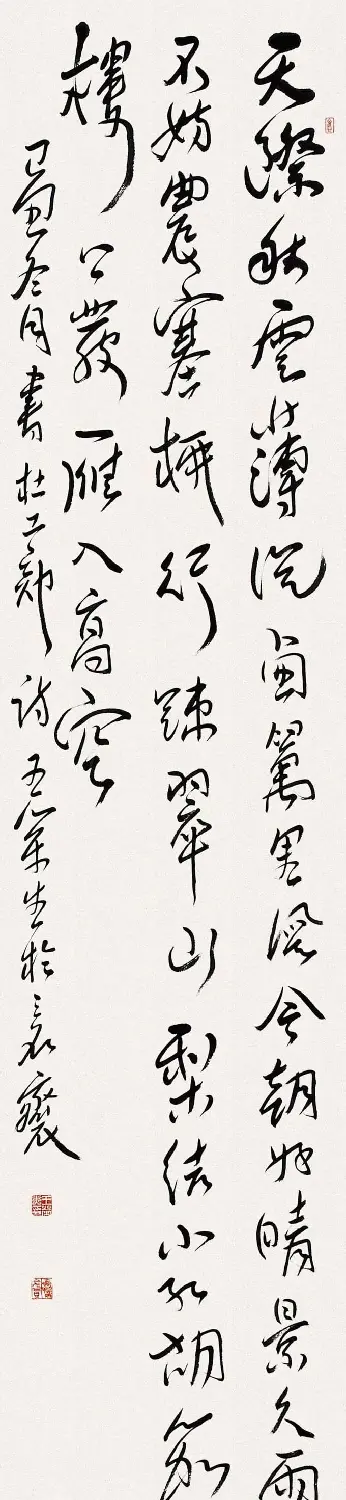 天際秋雲薄從西萬里風今朝好晴景久雨
不妨農塞柳行疎翠山梨結小紅胡笳
樓上發一雁入高空
己丑冬月書杜工部詩